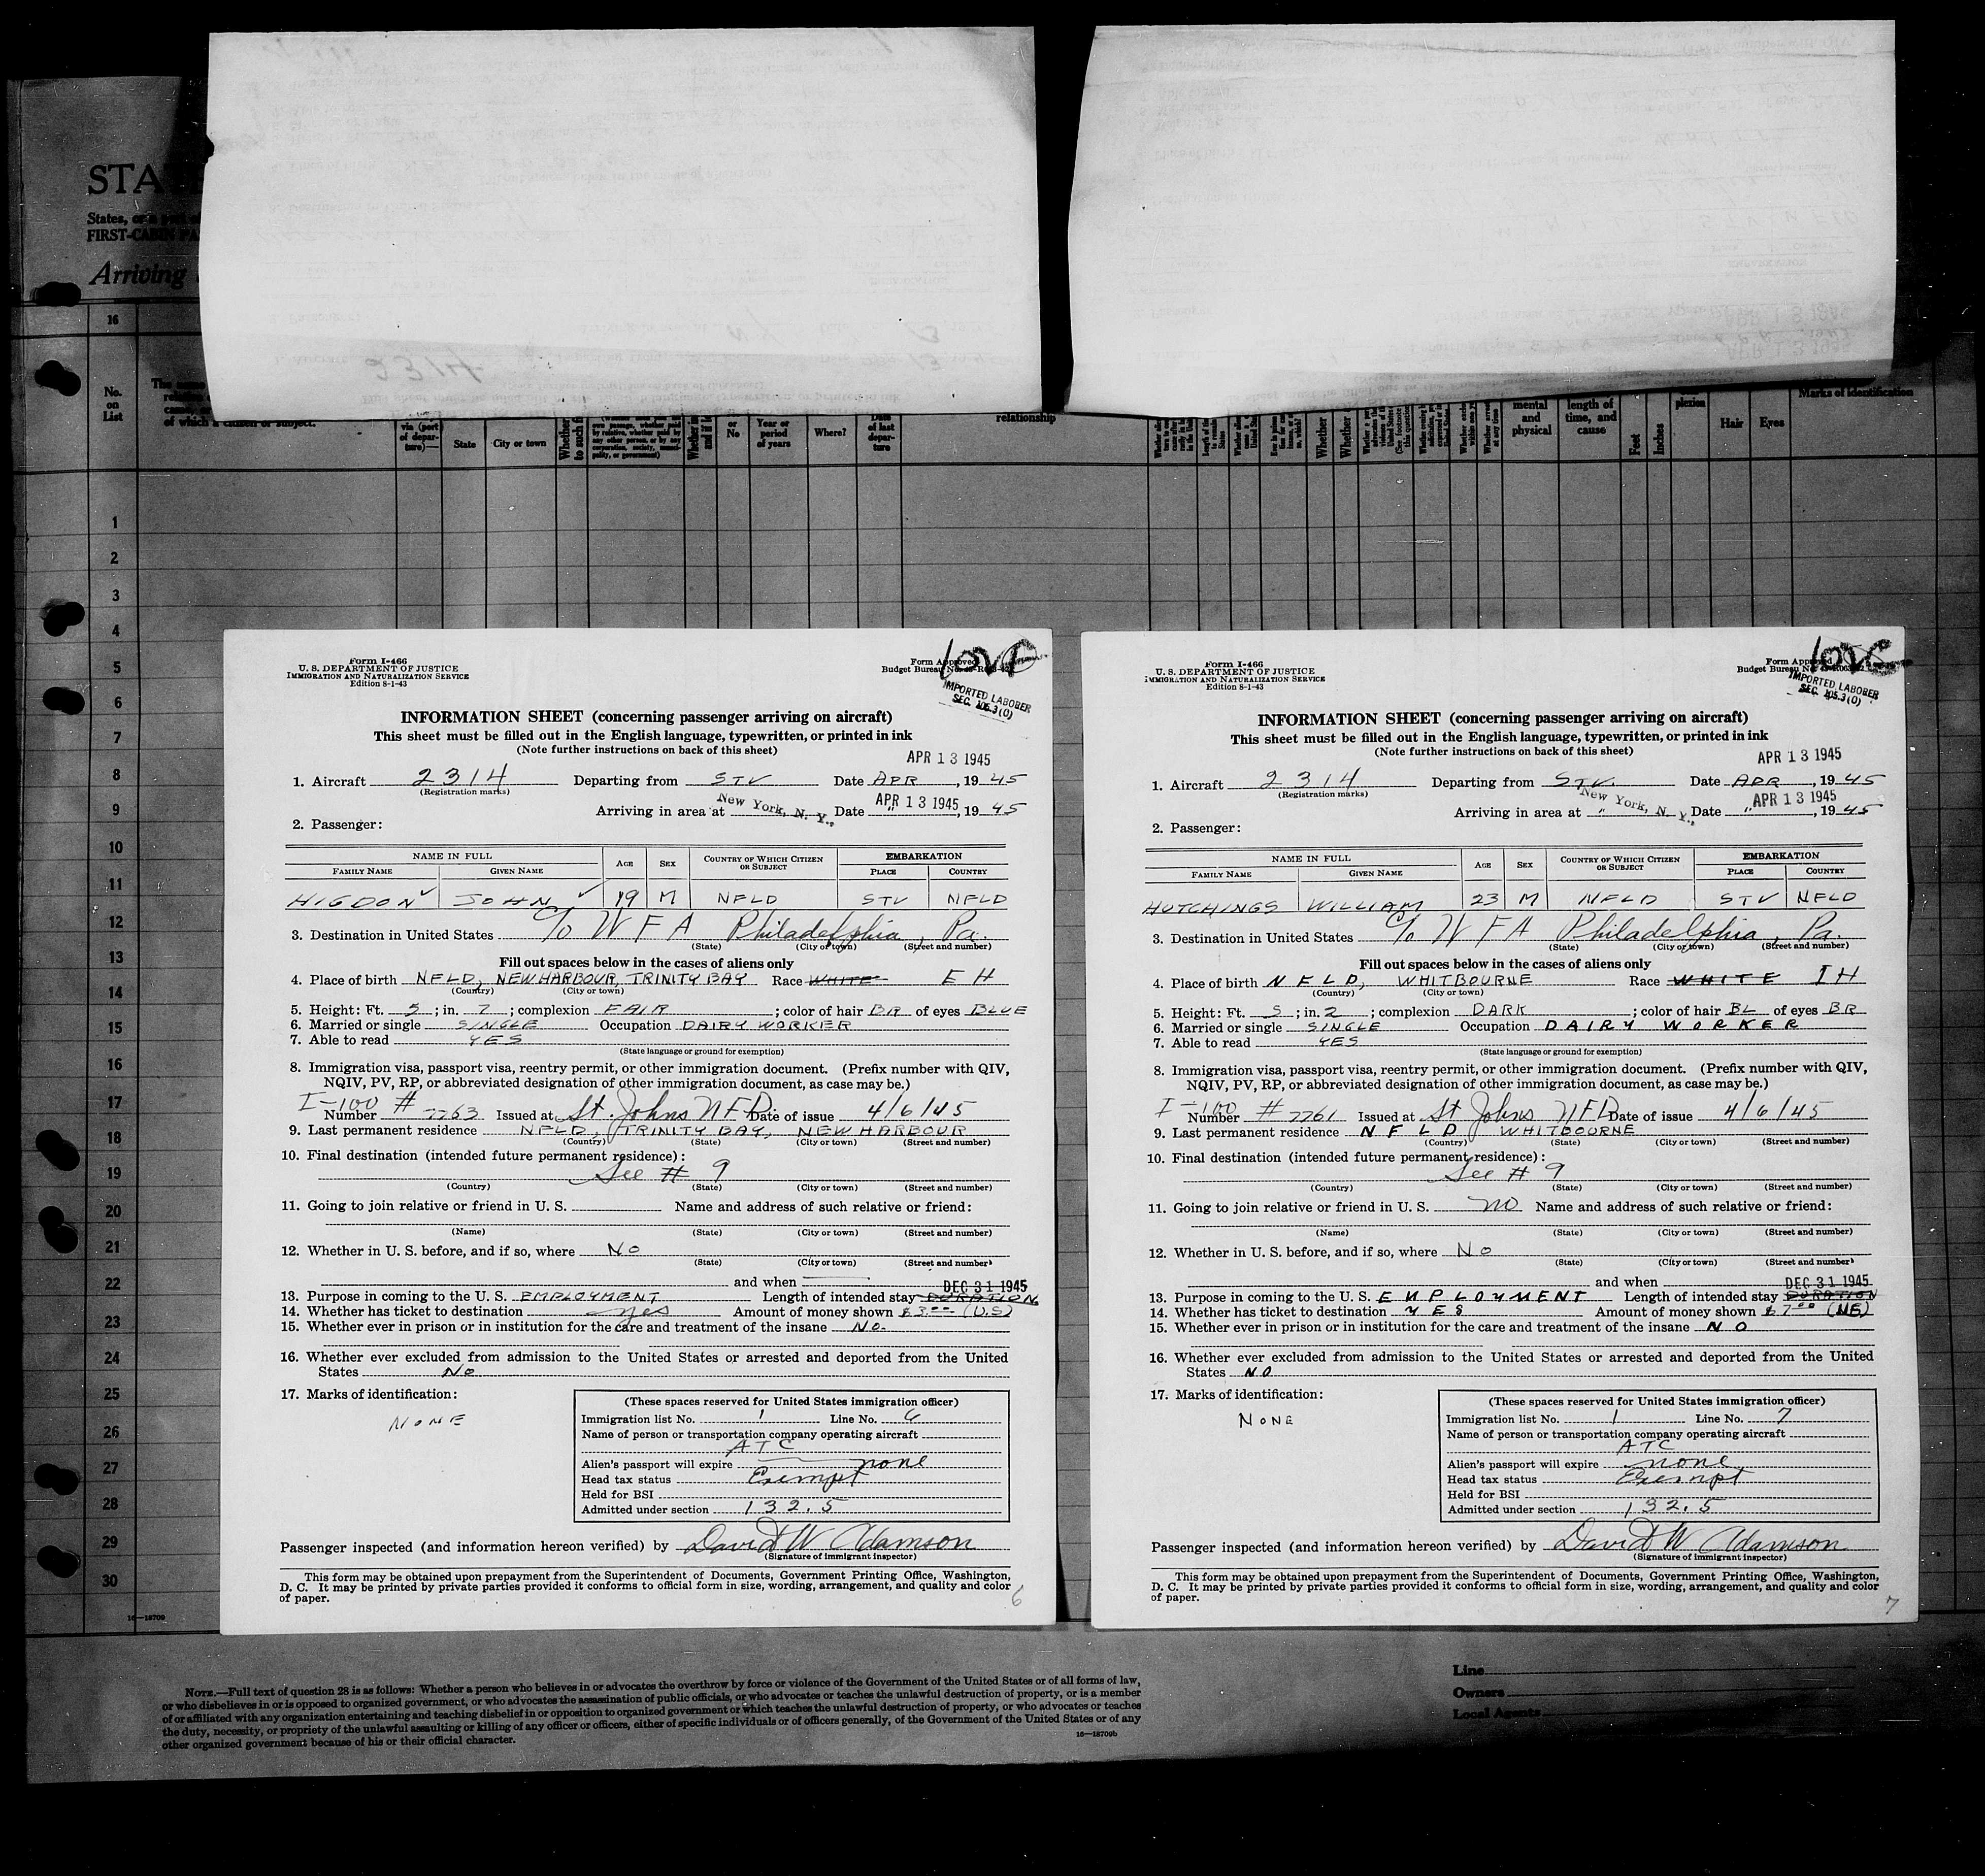 STA
States, or a
FIRST-CABIN PA
Arriving
16
No.
on
List
of which a citizen or subject.
via (port
of depar-
ture)—
State
City or town
Whether
to such
own passage, whether paid
by relative, whether paid by
any other person, or by any
corporation, society, munici-
pality, or government)
or
No
Year or
period
of years
Where?
Date
of last
depar-
ture
relationship
Whether
Whether
mental
and
physical
length of
time, and
cause
Feet
Inches
plexion
Hair
Eyes
Marks of identification
1
2
3
4
5
6
7
8
9
10
11
12
13
14
15
16
17
18
19
20
21
22
23
24
25
26
27
28
29
30
16—18709
Form I-466
U. S. DEPARTMENT OF JUSTICE
IMMIGRATION AND NATURALIZATION SERVICE
Edition 8-1-43
Form Approved
Budget Bureau No.
IMPORTED LABORER
SEC. 105.3 (O)
INFORMATION SHEET (concerning passenger arriving on aircraft)
This sheet must be filled out in the English language, typewritten, or printed in ink
(Note further instructions on back of this sheet)
APR 13 1945
1. Aircraft 2314 Departing from STV Date APR, 19 45
(Registration marks)
Arriving in area at New York, N. Y., Date APR 13 1945, 19 45
2. Passenger:
NAME IN FULL AGE SEX COUNTRY OF WHICH CITIZEN OR SUBJECT EMBARKATION
FAMILY NAME GIVEN NAME PLACE COUNTRY
HIGDON JOHN 19 M NFLD STV NFLD
3. Destination in United States c/o W F A Philadelphia, Pa.
(State) (City or town) (Street and number)
Fill out spaces below in the cases of aliens only
4. Place of birth NFLD, NEW HARBOUR, TRINITY BAY Race WHITE E H
(Country) (City or town)
5. Height: Ft. 5; in. 7; complexion FAIR; color of hair BR of eyes BLUE
6. Married or single SINGLE Occupation DAIRY WORKER
7. Able to read YES
(State language or ground for exemption)
8. Immigration visa, passport visa, reentry permit, or other immigration document. (Prefix number with QIV,
NQIV, PV, RP, or abbreviated designation of other immigration document, as case may be.)
I-100 # Number 7763 Issued at St. Johns NFD. Date of issue 4/6/45
9. Last permanent residence NFLD, TRINITY BAY, NEW HARBOUR
(Country) (State) (City or town) (Street and number)
10. Final destination (intended future permanent residence):
See # 9
(Country) (State) (City or town) (Street and number)
11. Going to join relative or friend in U. S. Name and address of such relative or friend:
(Name) (State) (City or town) (Street and number)
12. Whether in U. S. before, and if so, where No
(State) (City or town) (Street and number)
and when
DEC 31 1945
13. Purpose in coming to the U. S. EMPLOYMENT Length of intended stay DURATION
14. Whether has ticket to destination yes Amount of money shown $3.00 (U.S)
15. Whether ever in prison or in institution for the care and treatment of the insane No.
16. Whether ever excluded from admission to the United States or arrested and deported from the United
States No
17. Marks of identification:
NONE
(These spaces reserved for United States immigration officer)
Immigration list No. 1 Line No. 6
Name of person or transportation company operating aircraft
ATC
Alien's passport will expire none
Head tax status Exempt
Held for BSI
Admitted under section 132.5
Passenger inspected (and information hereon verified) by David W Adamson
(Signature of immigrant inspector)
This form may be obtained upon prepayment from the Superintendent of Documents, Government Printing Office, Washington,
D. C. It may be printed by private parties provided it conforms to official form in size, wording, arrangement, and quality and color
of paper.
6
Form I-466
U. S. DEPARTMENT OF JUSTICE
IMMIGRATION AND NATURALIZATION SERVICE
Edition 8-1-43
Form Approved
Budget Bureau No.
IMPORTED LABORER
SEC. 105.3 (O)
INFORMATION SHEET (concerning passenger arriving on aircraft)
This sheet must be filled out in the English language, typewritten, or printed in ink
(Note further instructions on back of this sheet)
APR 13 1945
1. Aircraft 2314 Departing from STV. Date APR, 19 45
(Registration marks)
Arriving in area at " New York, N. Y., Date " APR 13 1945, 19 45
2. Passenger:
NAME IN FULL AGE SEX COUNTRY OF WHICH CITIZEN OR SUBJECT EMBARKATION
FAMILY NAME GIVEN NAME PLACE COUNTRY
HUTCHINGS WILLIAM 23 M NFLD STV NFLD
3. Destination in United States c/o W F A Philadelphia, Pa.
(State) (City or town) (Street and number)
Fill out spaces below in the cases of aliens only
4. Place of birth NFLD, WHITBOURNE Race WHITE I H
(Country) (City or town)
5. Height: Ft. 5; in. 2; complexion DARK; color of hair BL of eyes BR
6. Married or single SINGLE Occupation DAIRY WORKER
7. Able to read YES
(State language or ground for exemption)
8. Immigration visa, passport visa, reentry permit, or other immigration document. (Prefix number with QIV,
NQIV, PV, RP, or abbreviated designation of other immigration document, as case may be.)
I-100 Number # 7761 Issued at St Johns NFLD Date of issue 4/6/45
9. Last permanent residence NFLD WHITBOURNE
(Country) (State) (City or town) (Street and number)
10. Final destination (intended future permanent residence):
See # 9
(Country) (State) (City or town) (Street and number)
11. Going to join relative or friend in U. S. no Name and address of such relative or friend:
(Name) (State) (City or town) (Street and number)
12. Whether in U. S. before, and if so, where No
(State) (City or town) (Street and number)
and when
DEC 31 1945
13. Purpose in coming to the U. S. EMPLOYMENT Length of intended stay DURATION
14. Whether has ticket to destination YES Amount of money shown $7.00
15. Whether ever in prison or in institution for the care and treatment of the insane NO
16. Whether ever excluded from admission to the United States or arrested and deported from the United
States NO
17. Marks of identification:
NONE
(These spaces reserved for United States immigration officer)
Immigration list No. 1 Line No. 7
Name of person or transportation company operating aircraft
ATC
Alien's passport will expire none
Head tax status Exempt
Held for BSI
Admitted under section 132.5
Passenger inspected (and information hereon verified) by David W Adamson
(Signature of immigrant inspector)
This form may be obtained upon prepayment from the Superintendent of Documents, Government Printing Office, Washington,
D. C. It may be printed by private parties provided it conforms to official form in size, wording, arrangement, and quality and color
of paper.
7
NOTE.—Full text of question 28 is as follows: Whether a person who believes in or advocates the overthrow by force or violence of the Government of the United States or of all forms of law,
or who disbelieves in or is opposed to organized government, or who advocates the assassination of public officials, or who advocates or teaches the unlawful destruction of property, or is a member
of or affiliated with any organization entertaining and teaching disbelief in or opposition to organized government or which teaches the unlawful destruction of property, or who advocates or teaches
the duty, necessity, or propriety of the unlawful assaulting or killing of any officer or officers, either of specific individuals or of officers generally, of the Government of the United States or of any
other organized government because of his or their official character.
16—18709b
Line
Owners
Local Agents